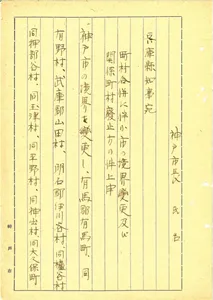 神戸市長　氏名
兵庫縣知事宛
町村合併に伴う市の境界変更及び
関係町村廃止方の件上申
神戸市の境界を変更し、有馬郡有馬町、同
有野村、武庫郡山田村、明石郡伊川谷村、同櫨谷村
同押部谷村、同玉津村、同平野村、同神出村、同大久保町
神戸市